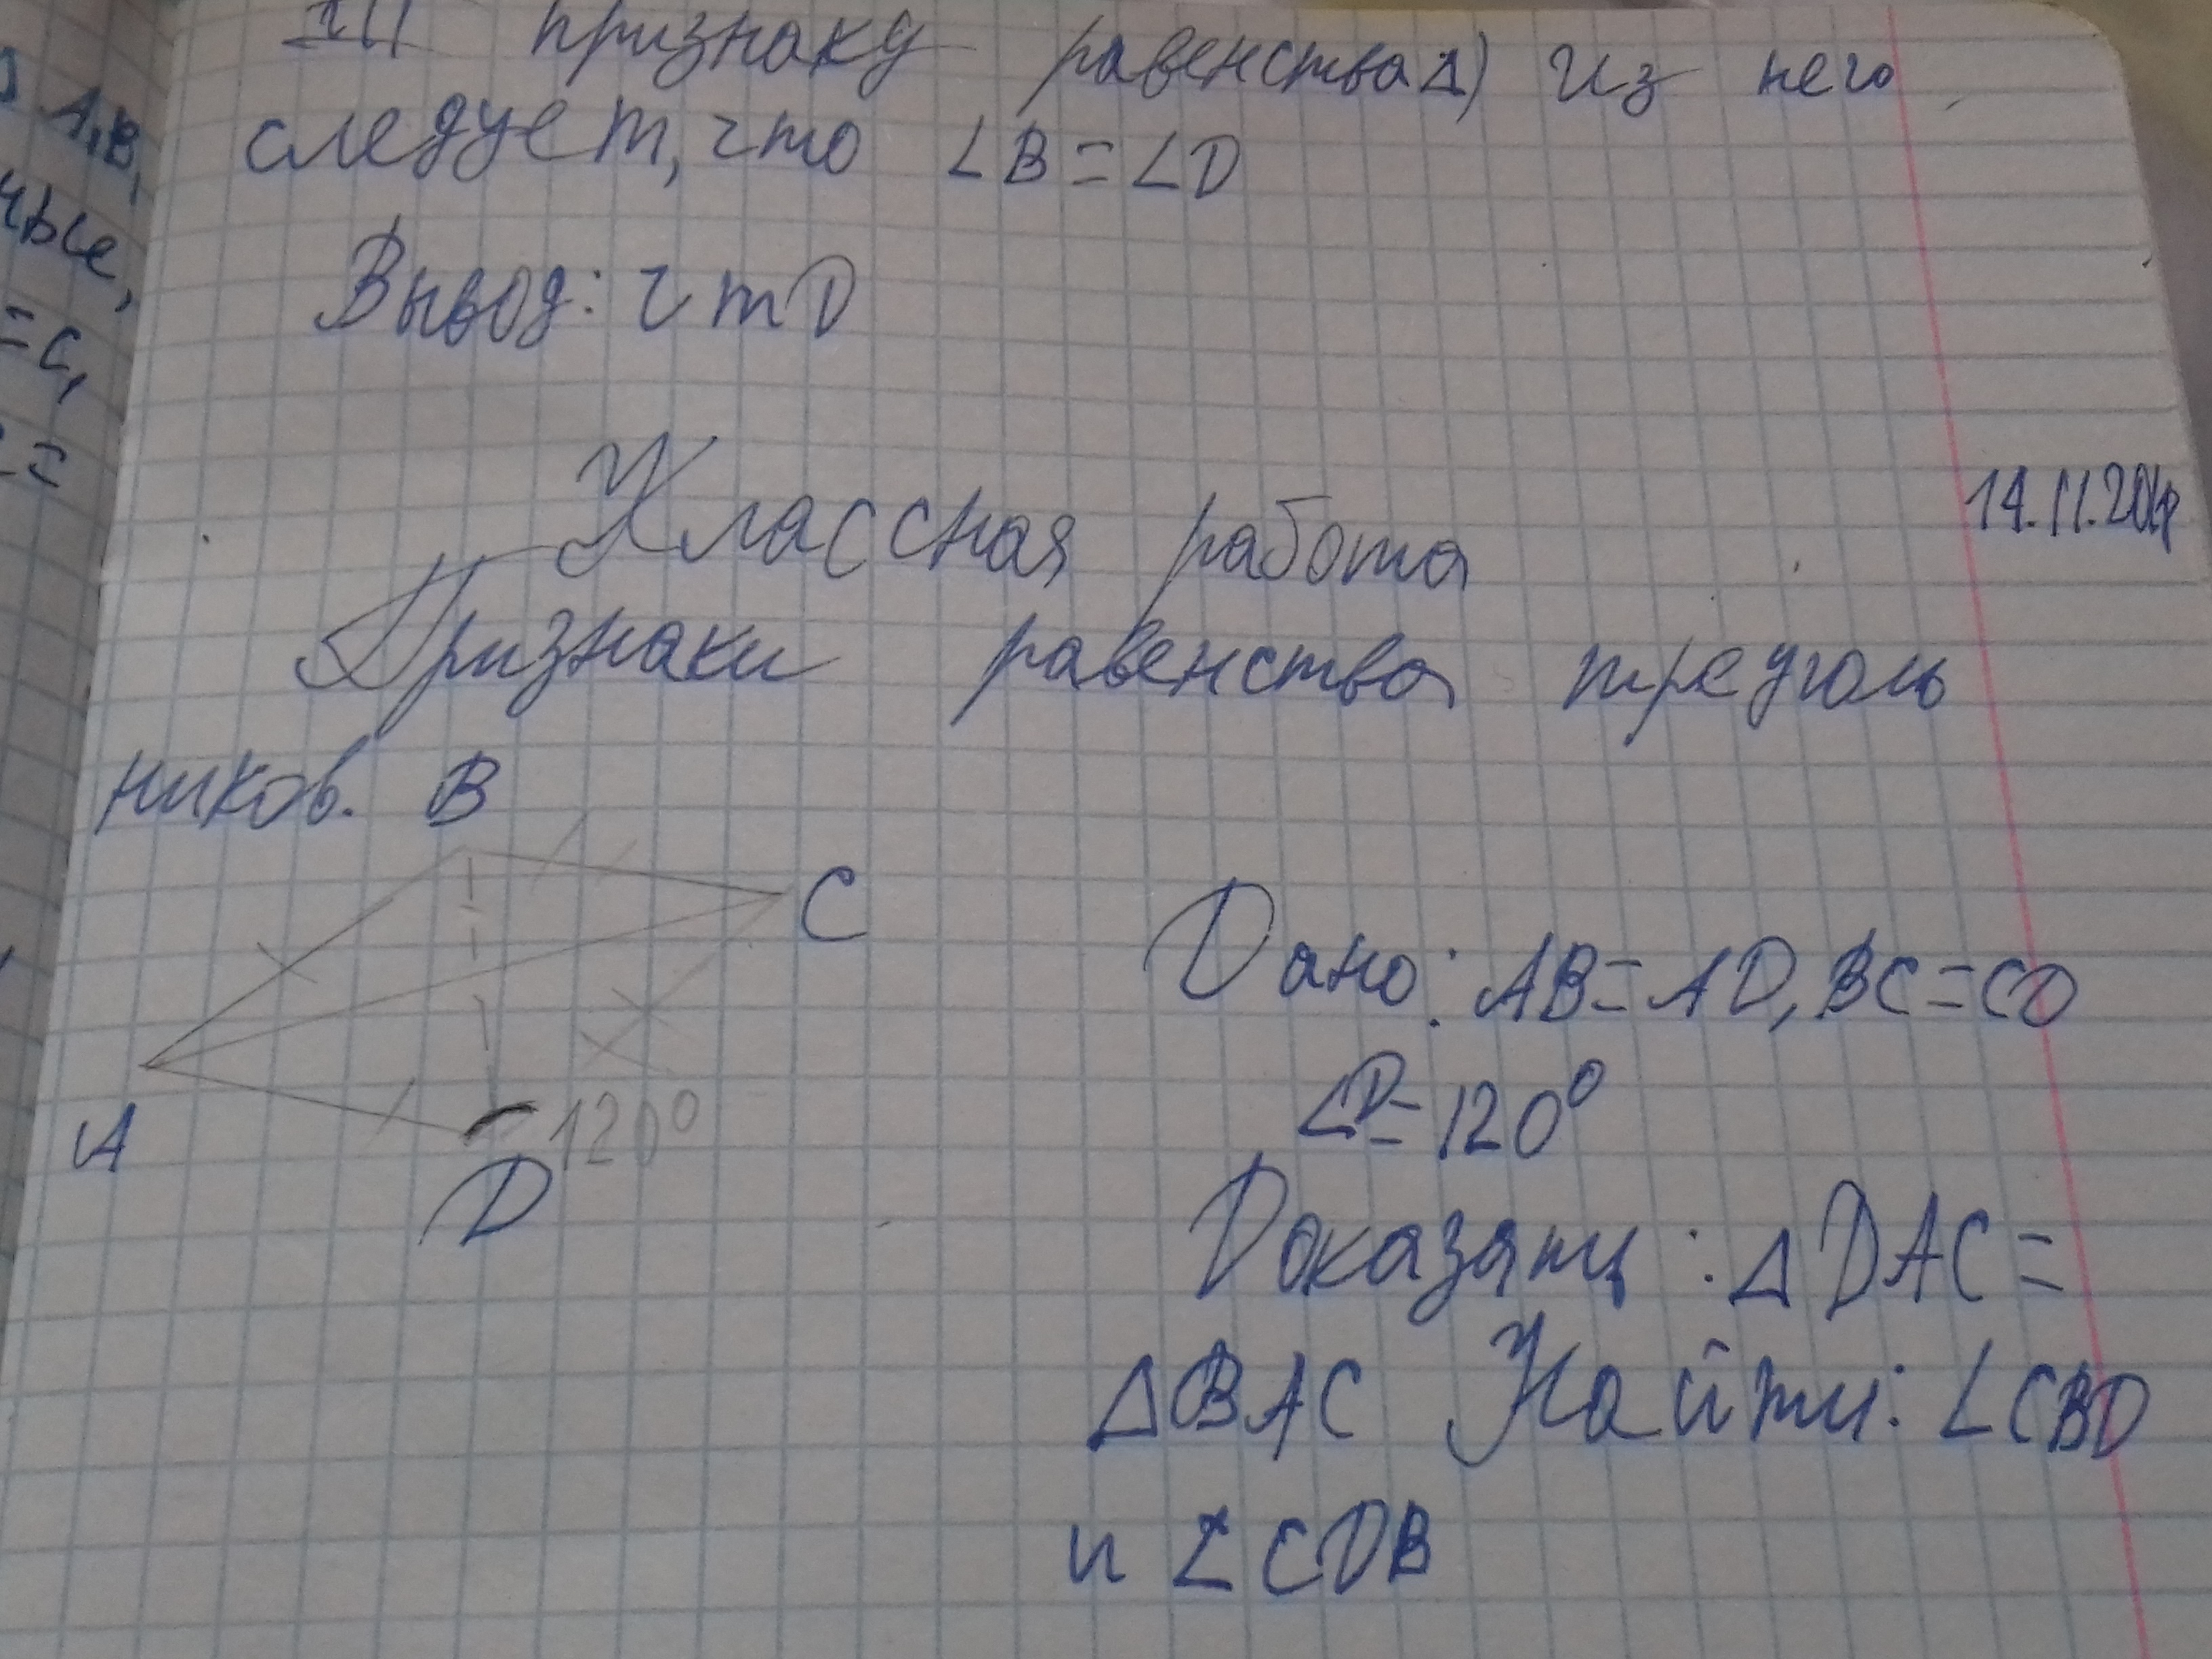 III признаку равенства Δ) Из него
следует, что ∠B = ∠D
Вывод: чтD
Классная работа
14.11.201
Признаки равенства треуголь
ников. B
C
A
D
120°
Дано: AB = AD, BC = CD
∠D = 120°
Доказать: Δ DAC =
Δ BAC Найти: ∠CBD
и ∠CDB
A,B,
чые,
= C,